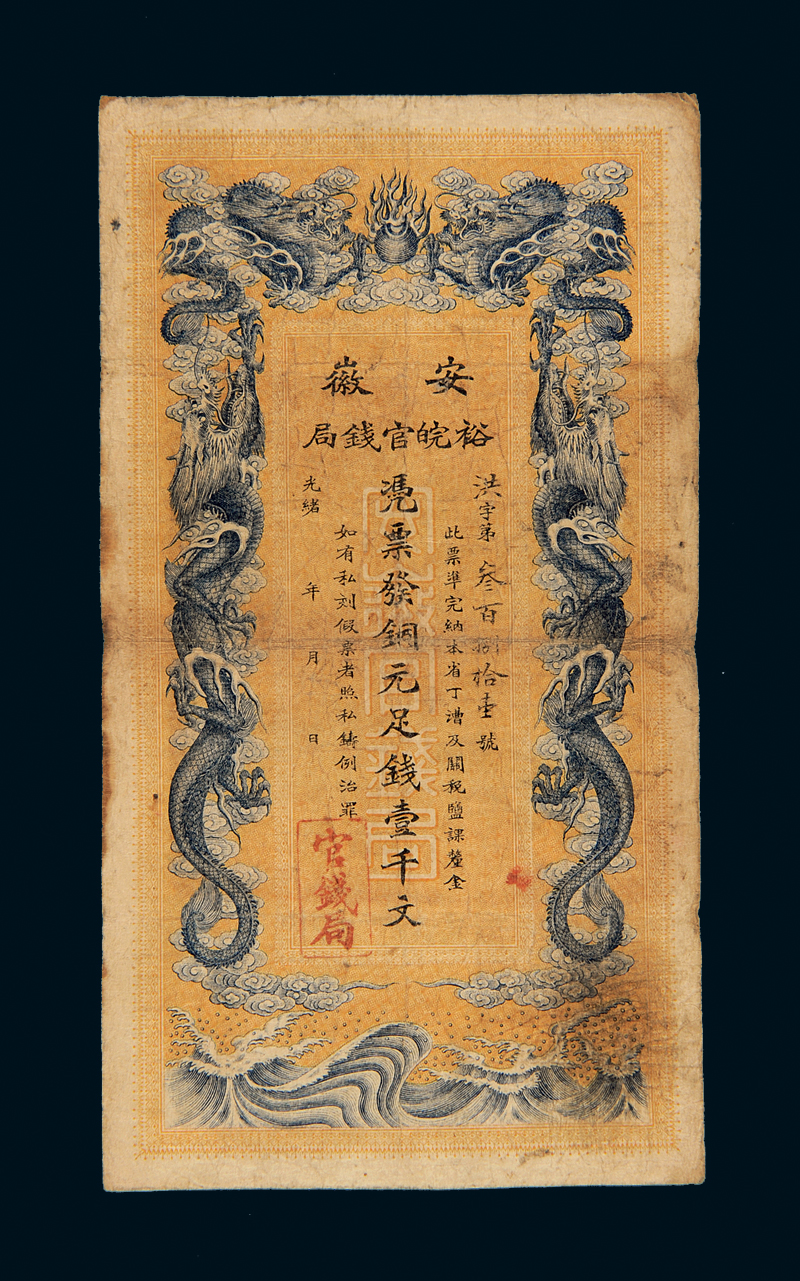 安徽
裕皖官錢局
洪字第叁百捌拾壹號
此票準完納本省丁漕及關稅鹽課釐金
憑票發銅元足錢壹千文
如有私刻假票者照私鑄例治罪
光緒 年 月 日
官錢局